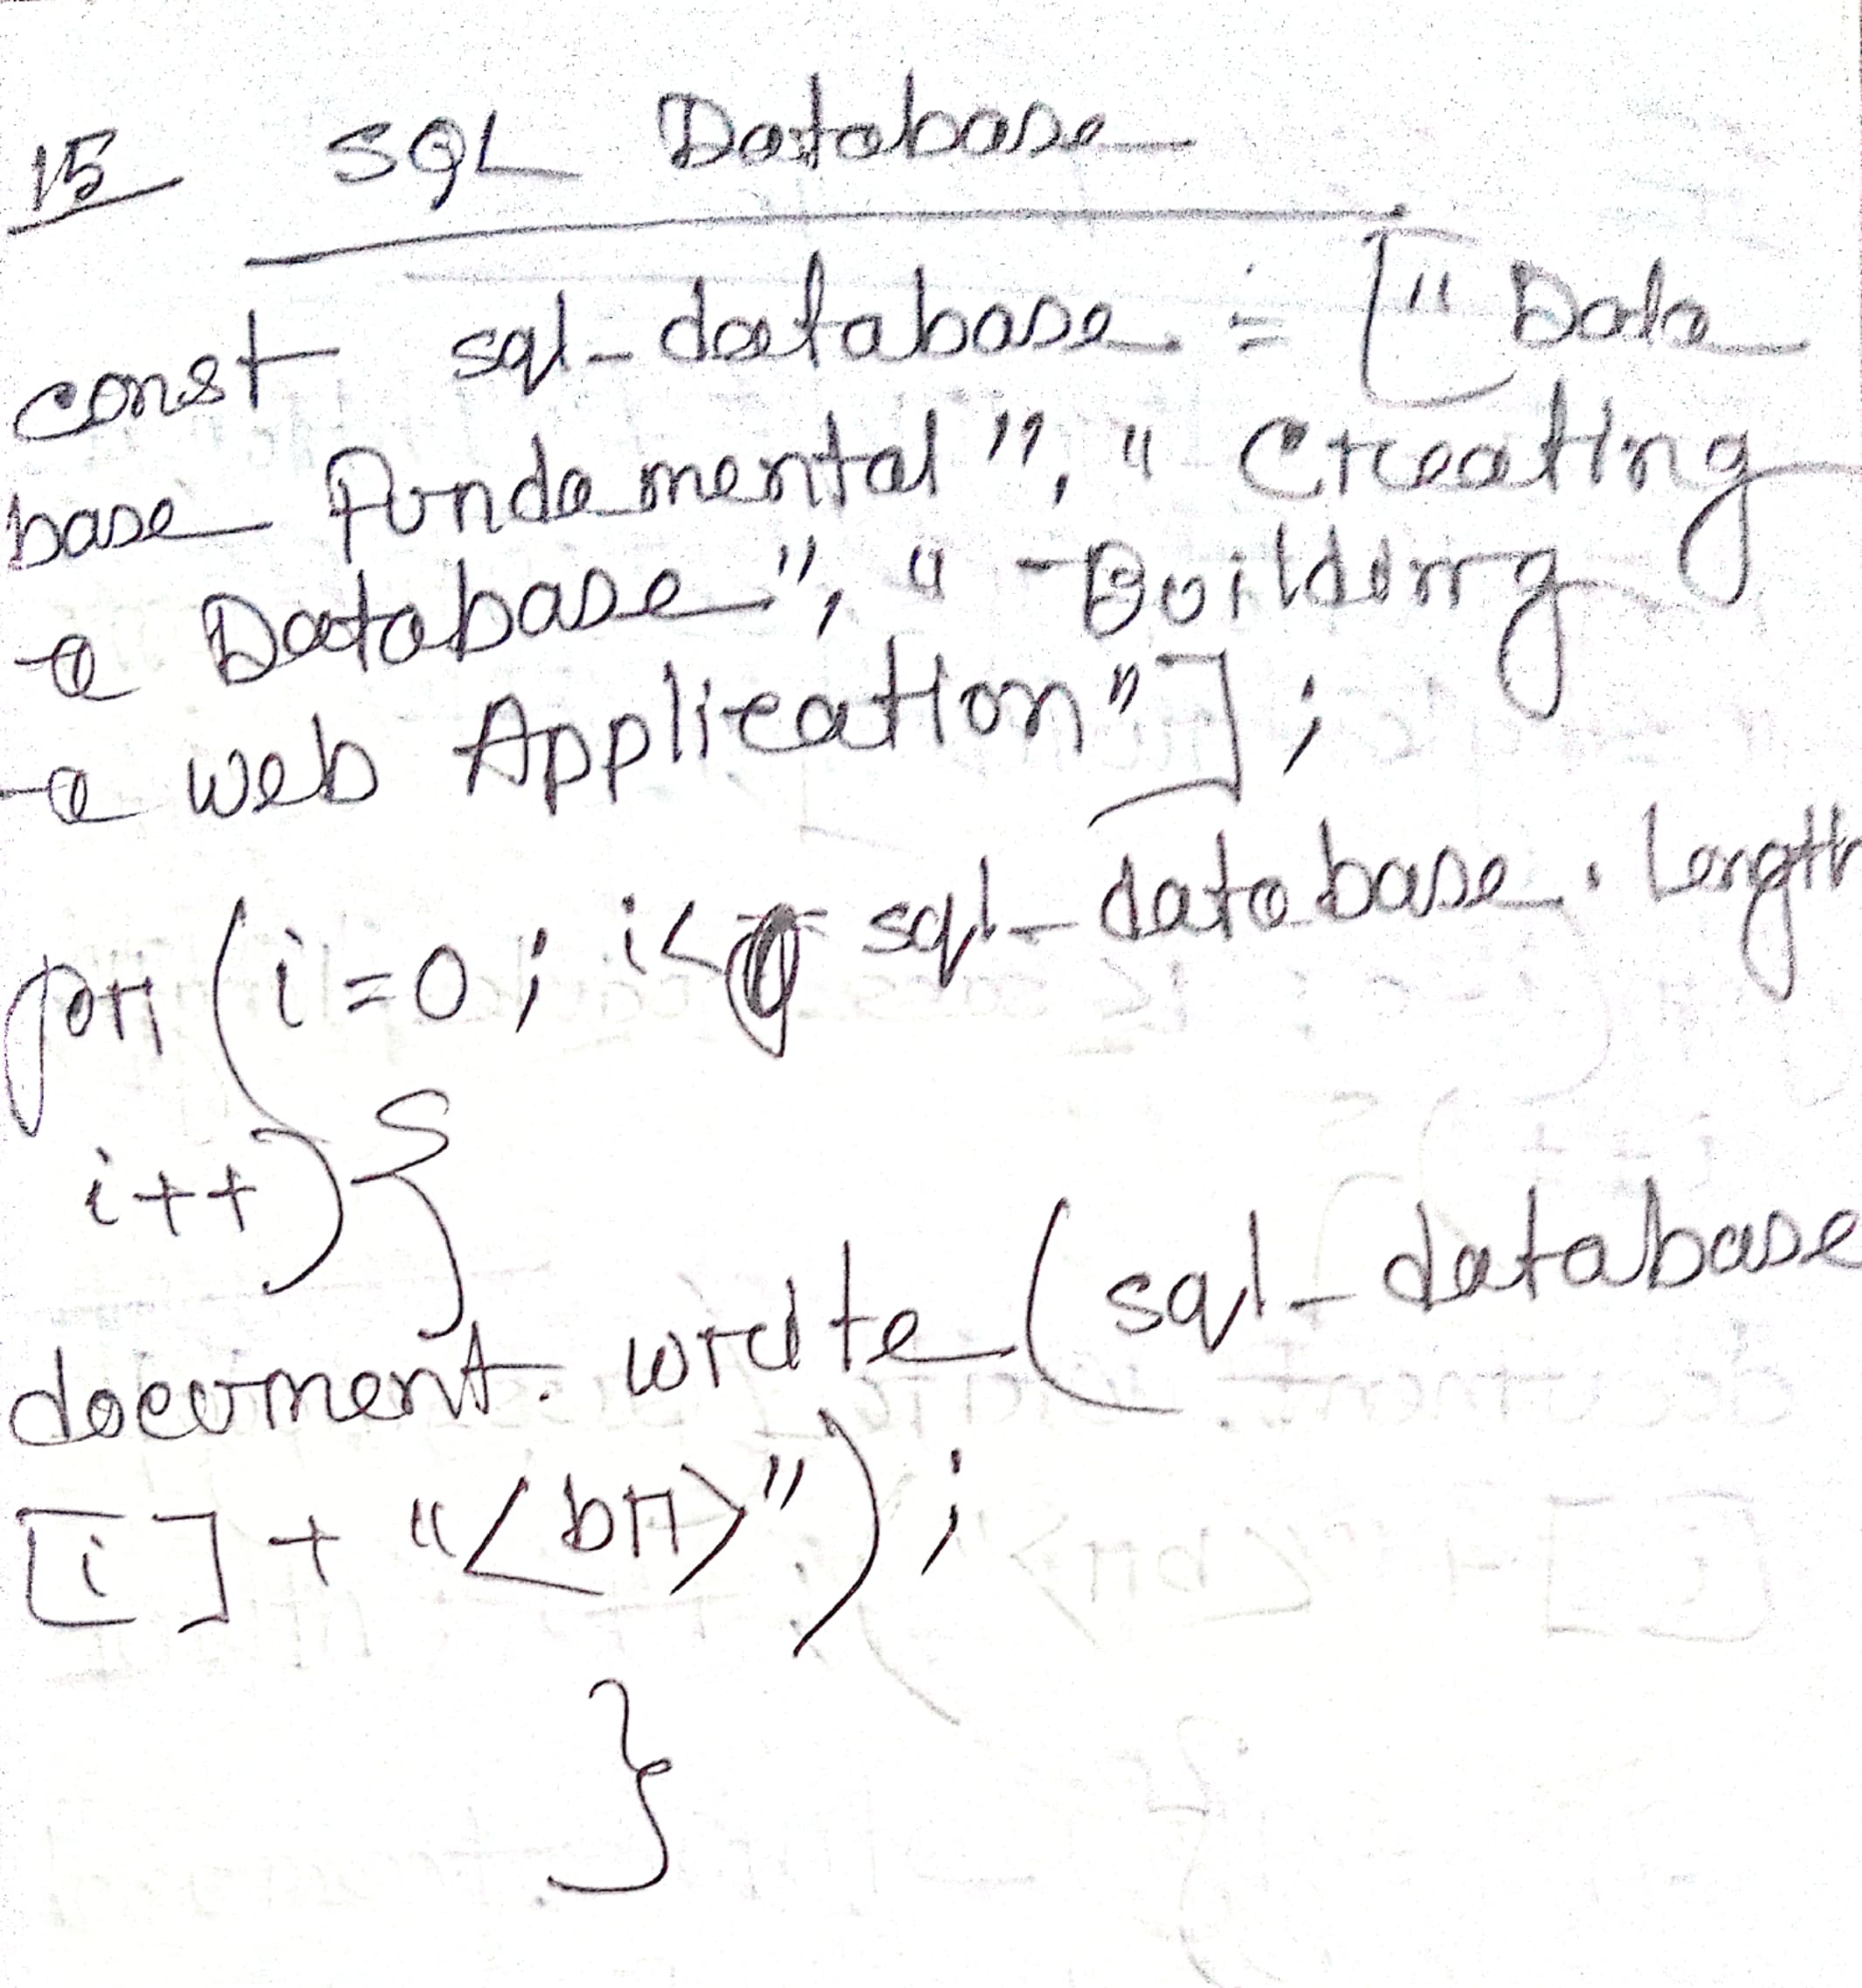 15 SQL Database
const sql-database = ["Data
base Fundamental", "Creating
a Database", "Building
a web Application"];
for (i=0; i< sql-database.length
i++) {
document.write(sql-database
[i] + "<br>");
}